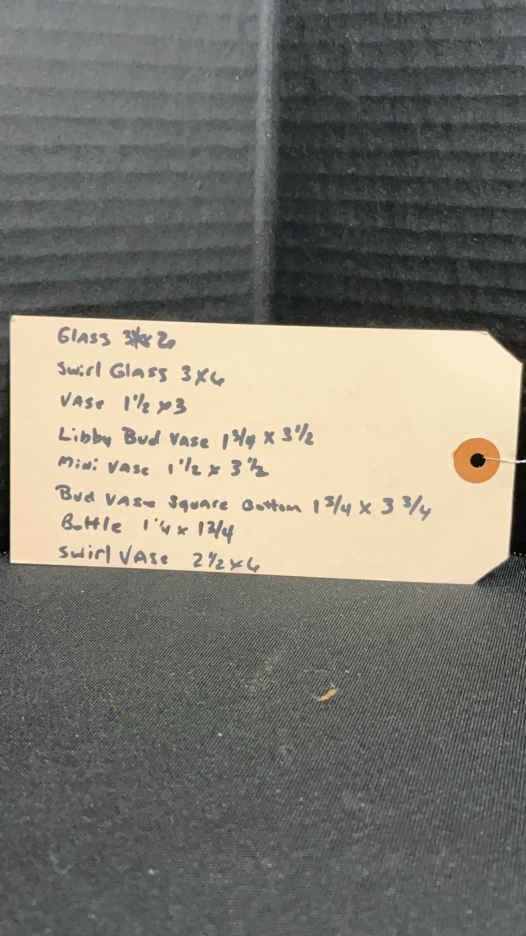 Glass
Swirl Glass 3x6
Vase 1 1/2 x 3
Libby Bud Vase 1 3/4 x 3 1/2
Mini Vase 1 1/2 x 3 1/2
Bud Vase Square Bottom 1 3/4 x 3 3/4
Bottle 1 1/4 x 1 3/4
Swirl Vase 2 1/2 x 6